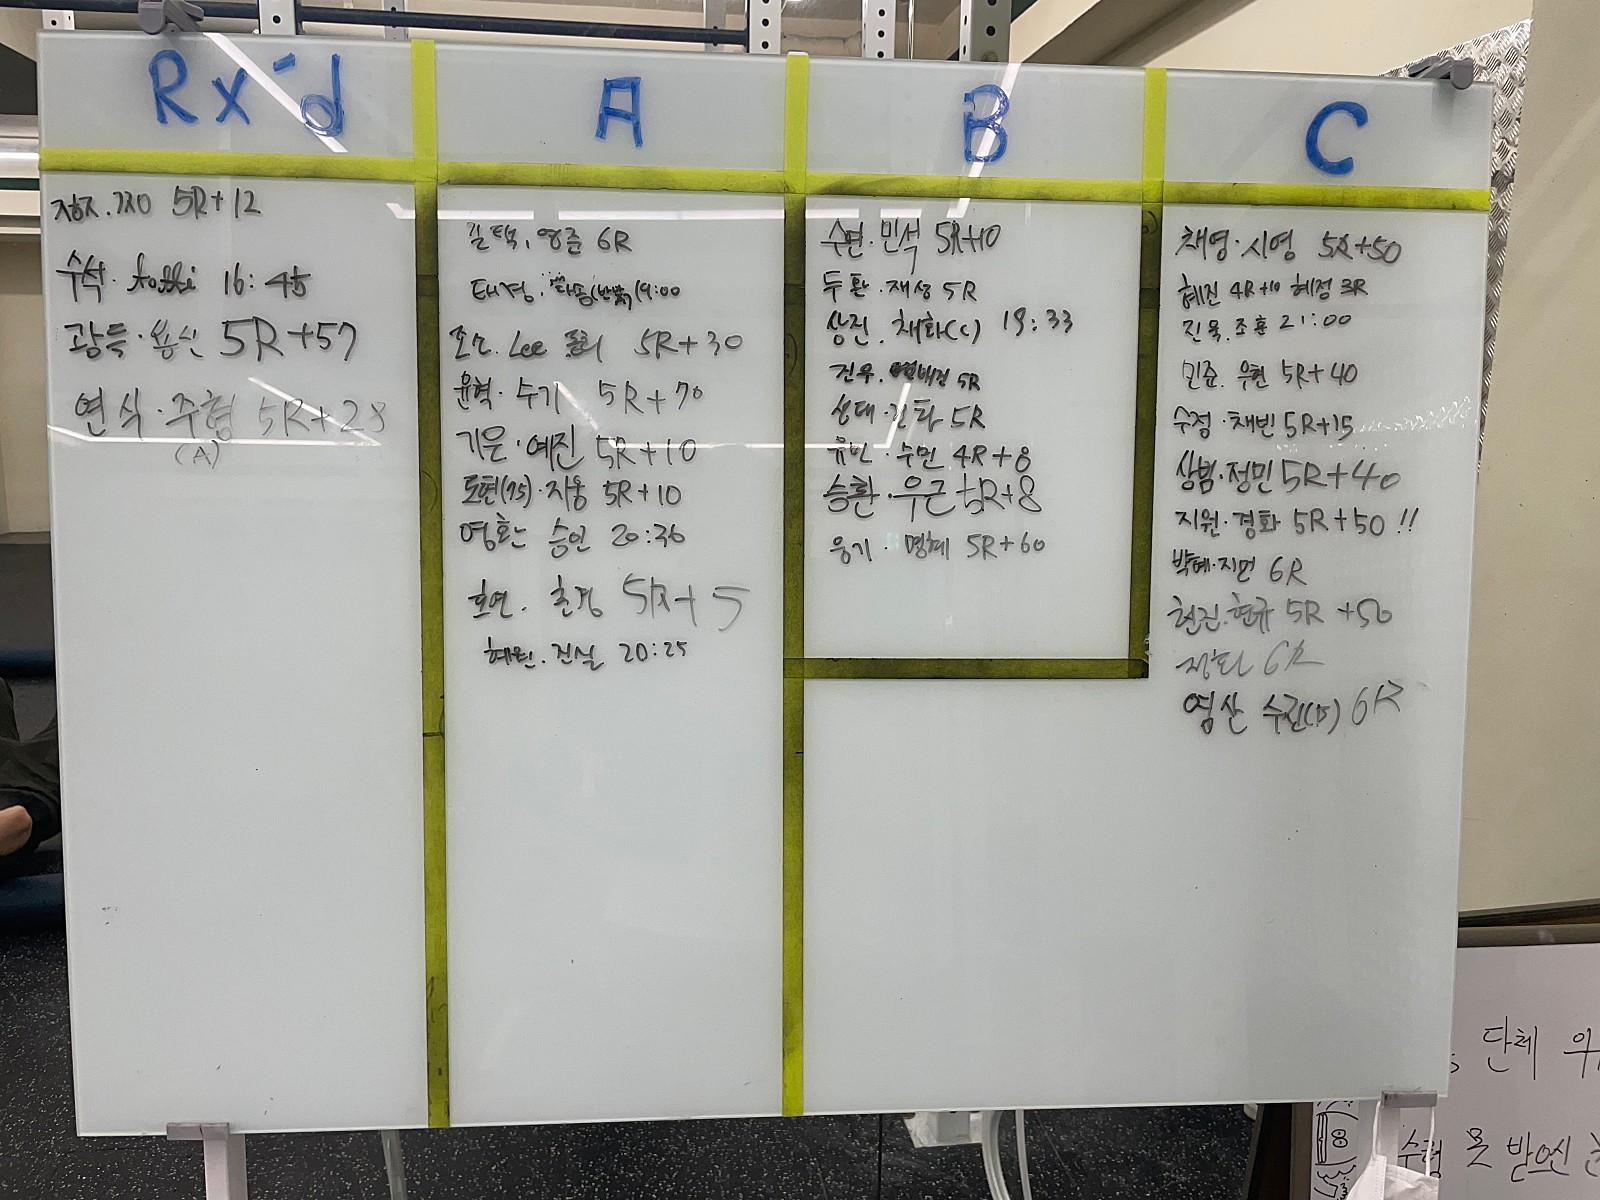 Rx'd
5R+12
수석. 16:45
광득·용신 5R+57
연식·주형 5R+28
(A)
A
길택, 영준 6R
태경.
Lee 5R+30
윤혁·수기 5R+70
기은·예진 5R+10
도현(75)·지웅 5R+10
영환 승언 20:36
호연. 5R+5
혜원. 진실 20:25
B
수련·민석 5R+10
두환·재성 5R
상진. 채화(C) 19:33
진우. 5R
상대· 5R
유민·수민 4R+8
승환·우근 5R+8
웅기·명혜 5R+60
C
채영·시영 5R+50
혜진 4R+10 혜정 3R
진욱.조훈 21:00
민준. 우현 5R+40
수정·채빈 5R+15
상범·정민 5R+40
지원·경화 5R+50 !!
박혜·지연 6R
현진.현규 5R +50
6R
영산 6R
단체
8
못 받으신